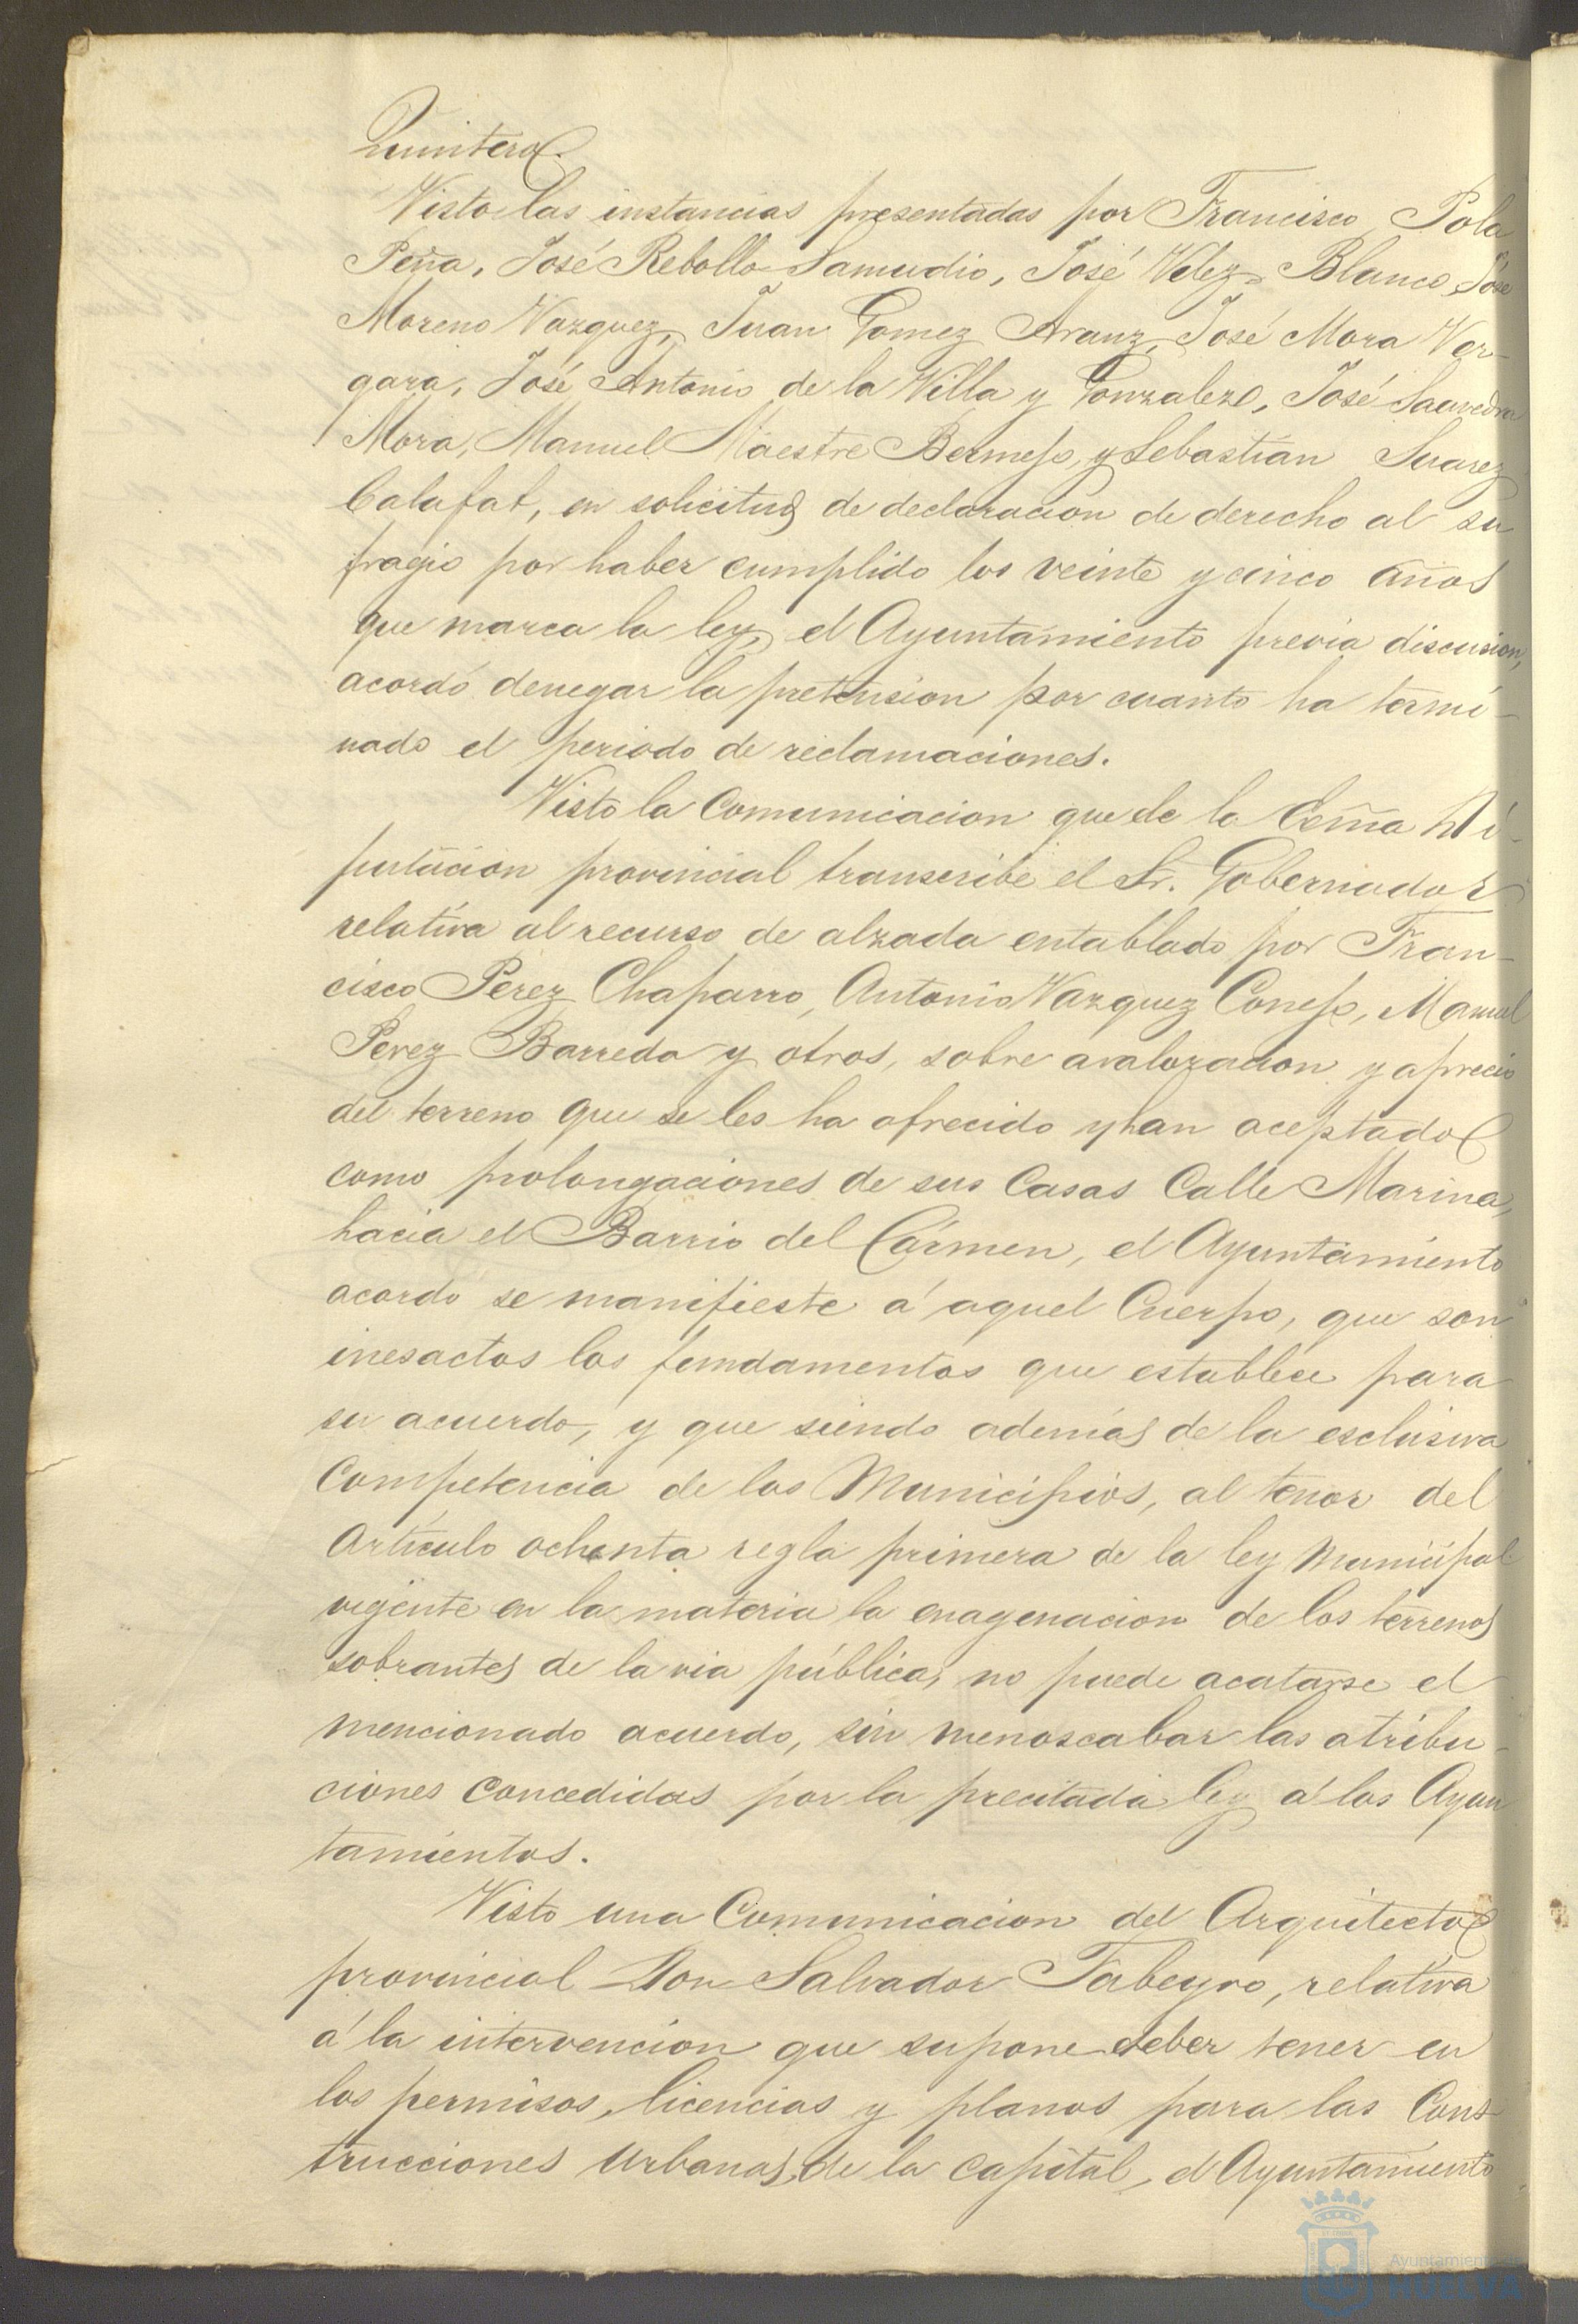 Quintero.
Visto las instancias presentadas por Francisco Pola
Peña, José Rebollo Samudio, José Velez Blanco, José
Moreno Vazquez, Juan Gomez Aranz, José Mora Ver-
gara, José Antonio de la Villa y Gonzalez, José Saavedra
Mora, Manuel Maestre Bermejo, y Sebastián Suarez
Calafat, en solicitud de declaracion de derecho al su
fragio por haber cumplido los veinte y cinco años
que marca la ley, el Ayuntamiento previa discusion,
acordó denegar la pretension por cuanto ha termi-
nado el periodo de reclamaciones.
Visto la Comunicacion que de la Ecma Di-
putacion provincial transcribe el Sr. Gobernador
relativa al recurso de alzada entablado por Fran-
cisco Perez Chaparro, Antonio Vazquez Conejo, Manuel
Perez Barreda y otros, sobre avaloracion y aprecio
del terreno que se les ha ofrecido y han aceptado
como prolongaciones de sus Casas Calle Marina,
hacia el Barrio del Cármen, el Ayuntamiento
acordó se manifieste á aquel Cuerpo, que son
inesactos los fundamentos que establece para
su acuerdo, y que siendo además de la esclusiva
Competencia de los Municipios, al tenor del
Artículo ochenta regla primera de la ley Municipal
vigente en la materia la enagenacion de los terrenos
sobrantes de la via pública, no puede acatarse el
mencionado acuerdo, sin menoscabar las atribu-
ciones Concedidas por la precitada ley á los Ayun
tamientos.
Visto una Comunicacion del Arquitecto
provincial Don Salvador Tabeyro, relativa
á la intervencion que supone deber tener en
los permisos, licencias y planos para las Cons-
trucciones Urbanas de la Capital, el Ayuntamiento
Ayuntamiento
HUELVA